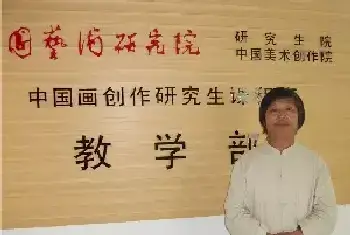 国藝術研究院
研究生院
中国美术创作院
中国画创作研究生课程
教学部